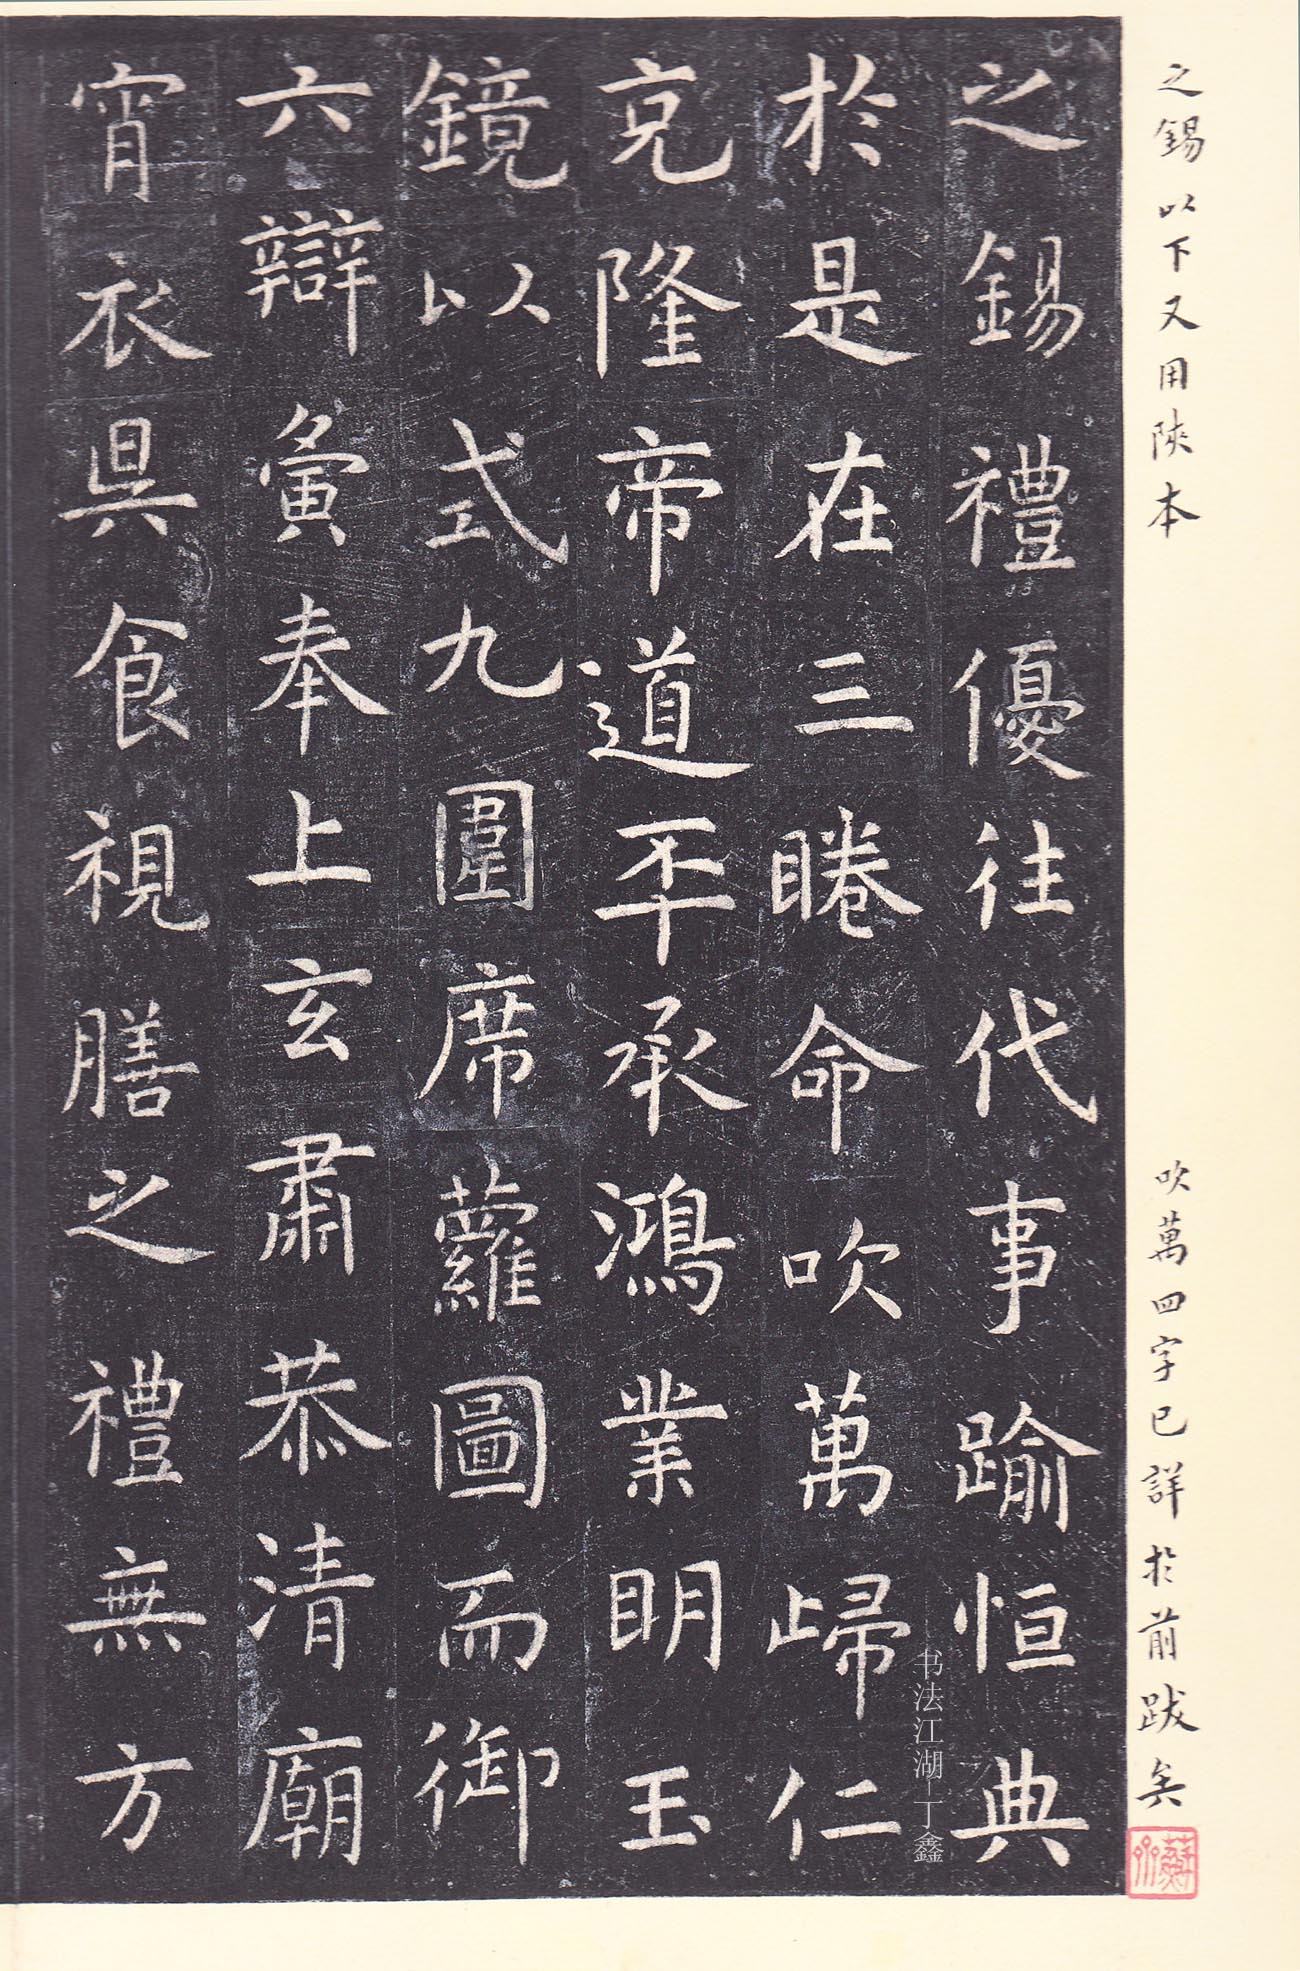 之錫以下又用陝本
吹萬四字已詳於前跋矣
之錫禮優往代事踰恒典
於是在三眷命吹萬歸仁
克隆帝道丕承鴻業明玉
鏡以式九圍席蘿圖而御
六辯寅奉上玄肅恭清廟
宵衣具食視膳之禮無方
书法江湖丁鑫